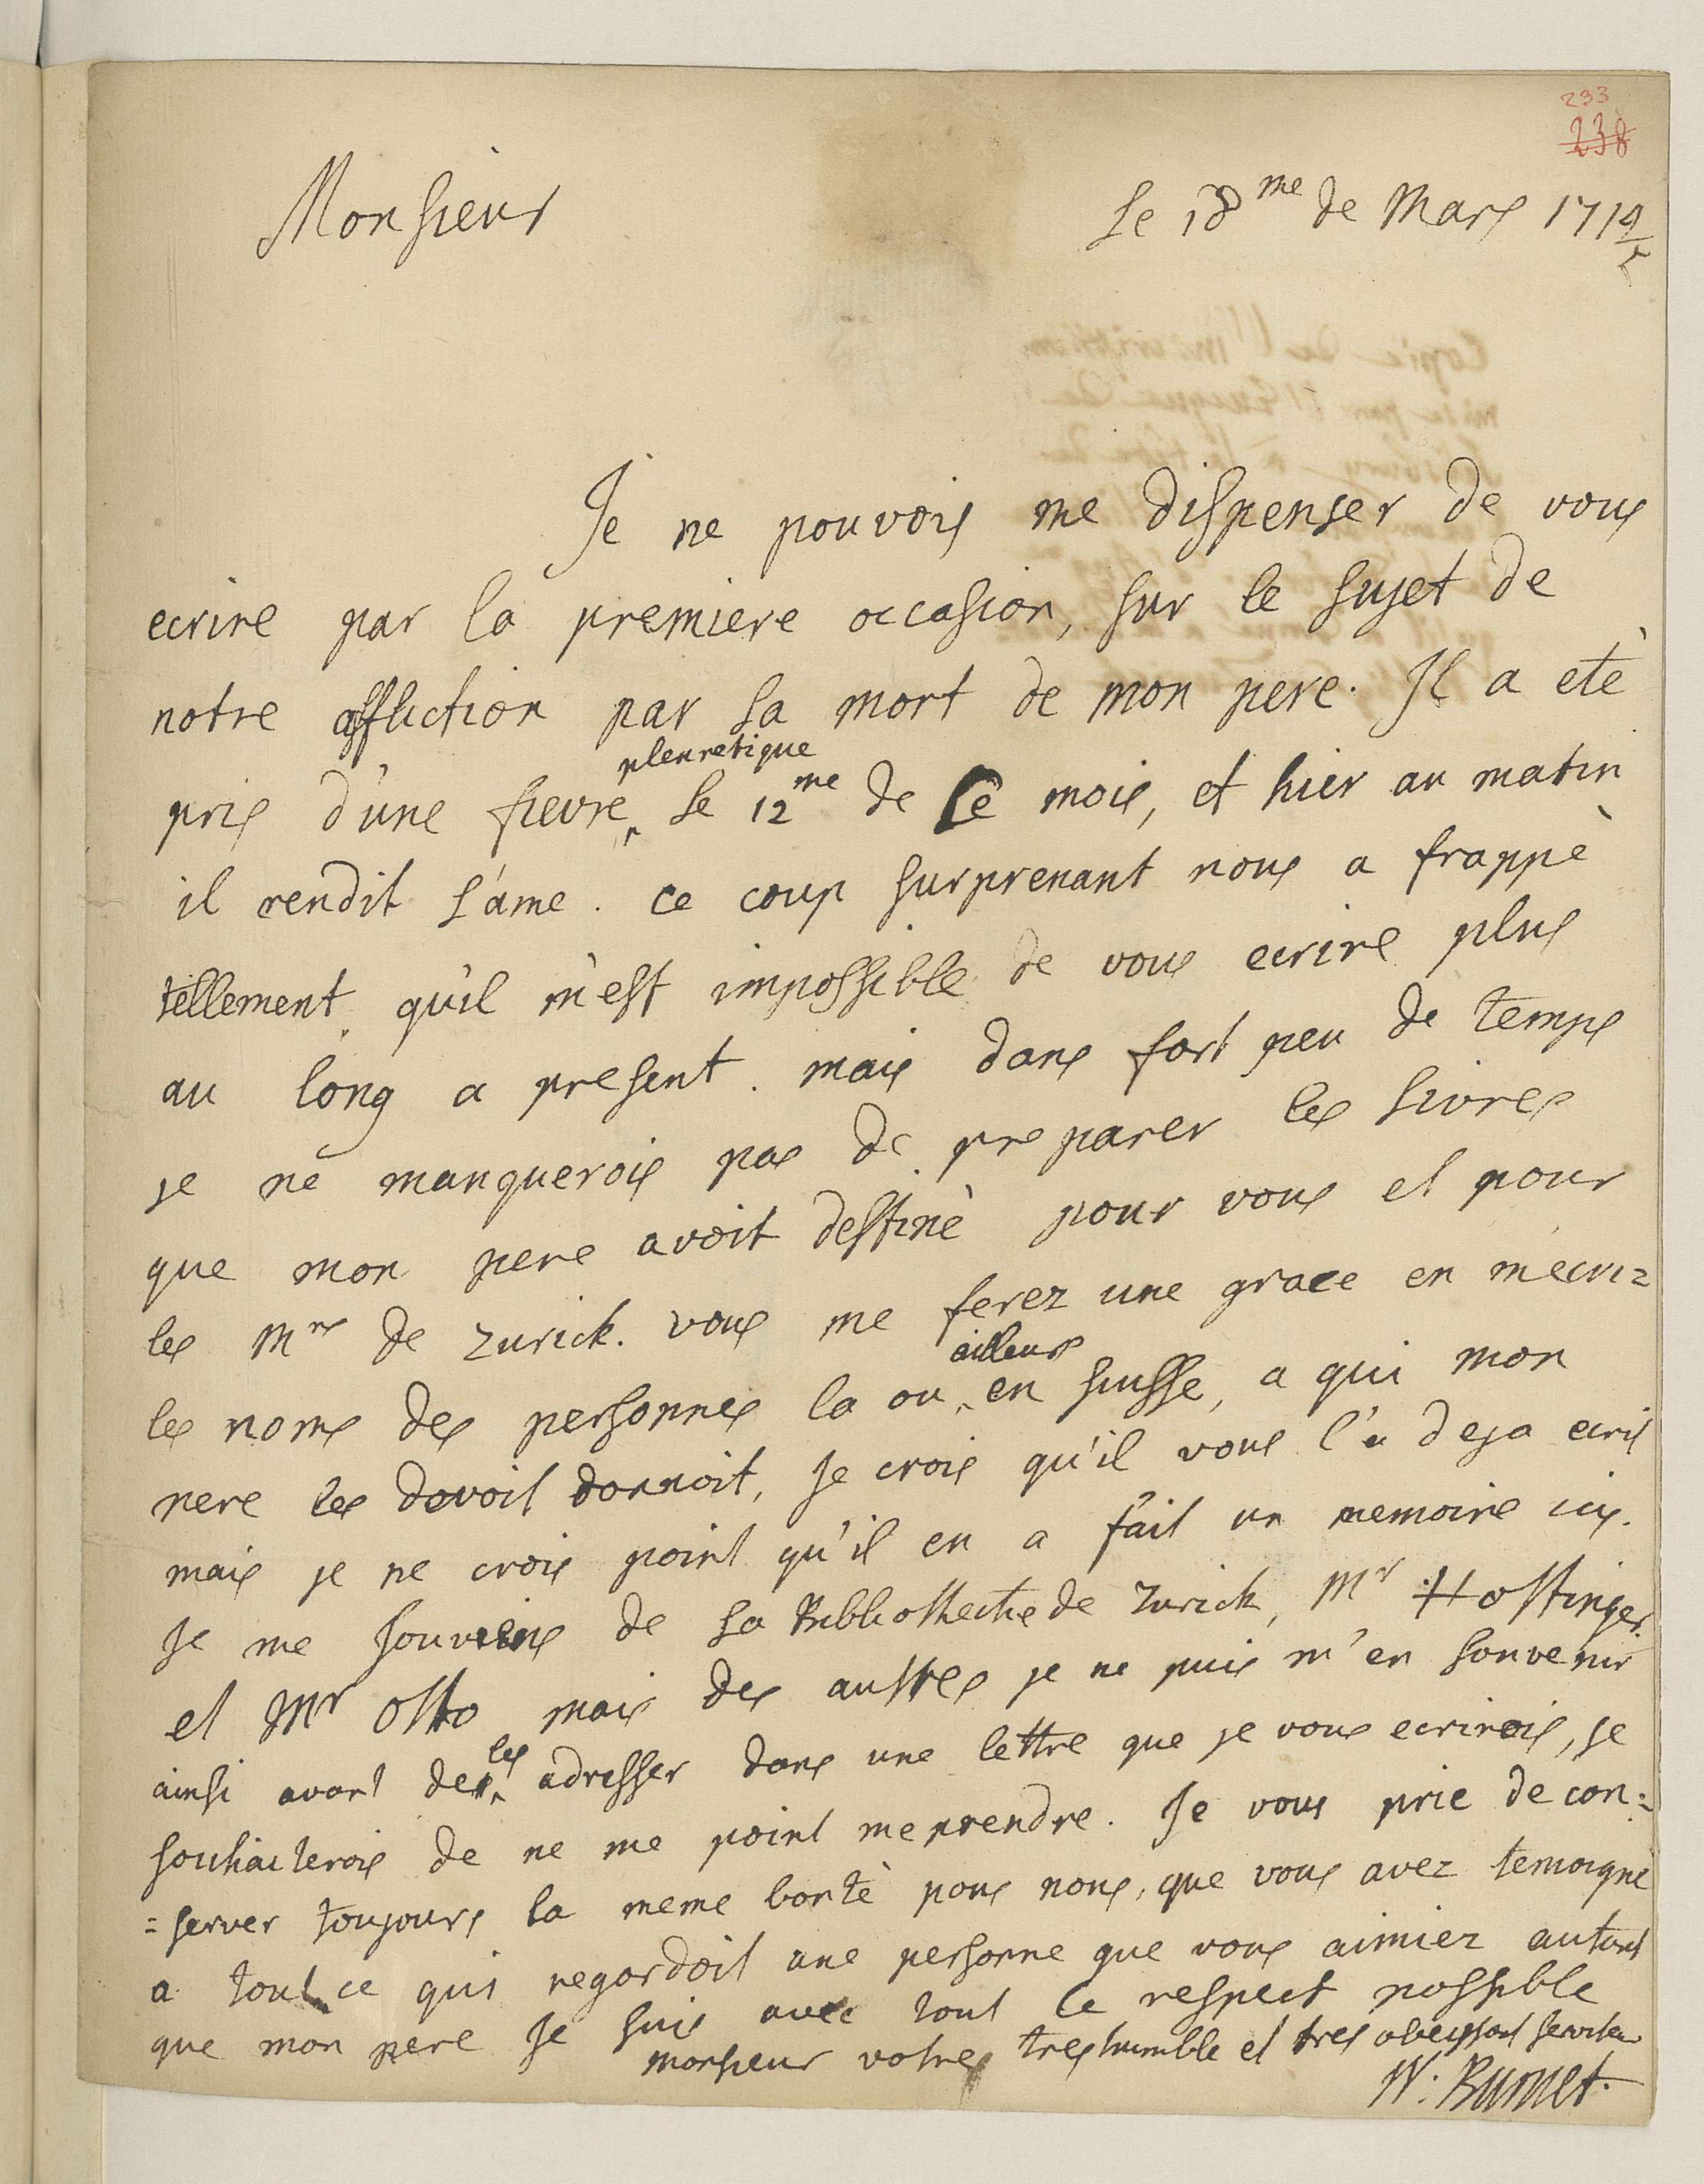 233
238
Monsieur
Le 18me de Mars 1714/5
Je ne pouvois me dispenser de vous
ecrire par la premiere occasion, sur le sujet de
notre affliction par la mort de mon pere. Il a etè
pleuretique
pris d'une fievre ‸ le 12me de ce mois, et hier au matin
il rendit l'ame. ce coup surprenant nous a frappè
tellement qu'il m'est impossible de vous ecrire plus
au long a present. mais dans fort peu de temps
je ne manquerois pas de preparer les livres
que mon pere avoit destinè pour vous et pour
les Mrs de Zurick. vous me ferez une grace en m'ecri=
ailleurs
les noms des personnes la ou ‸ en suisse, a qui mon
pere les devoit donnoit, Je crois qu'il vous l'a deja ecris
mais je ne crois point qu'il en a fait un memoire icy.
Je me souviens de la Bibliotheche de Zurick, Mr Hottinger
et Mr Otto mais des autres je ne puis m'en souvenir
les
ainsi avant de ‸ adresser dans une lettre que je vous ecrirois, je
souhaiterois de ne me point meprendre. Je vous prie de con=
=server toujours la meme bontè pour nous, que vous avez temoignè
a tout ce qui regardoit une personne que vous aimiez autant
que mon pere Je suis avec tout le respect possible
monsieur votre tres humble et tres obeissant serviteur
W: Burnet.